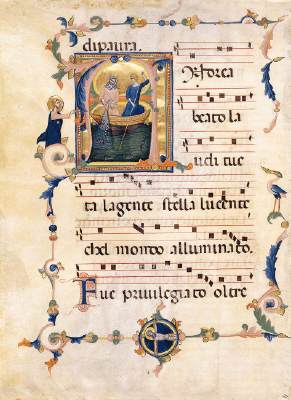 dipaura.
ANdrea
beato la
udi tuc
ta lagente stella lucente
chel mondo alluminato.
Fue priuilegiato oltre